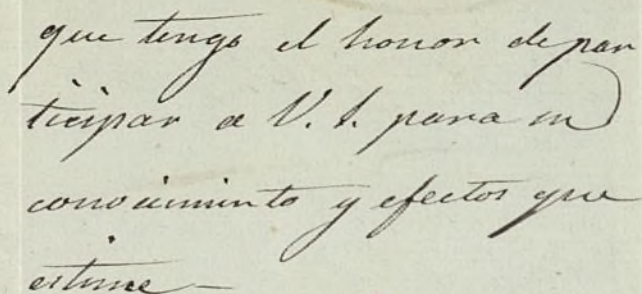 que tengo el honor de par
ticipar a V. S. para su
conocimiento y efectos que
estime—